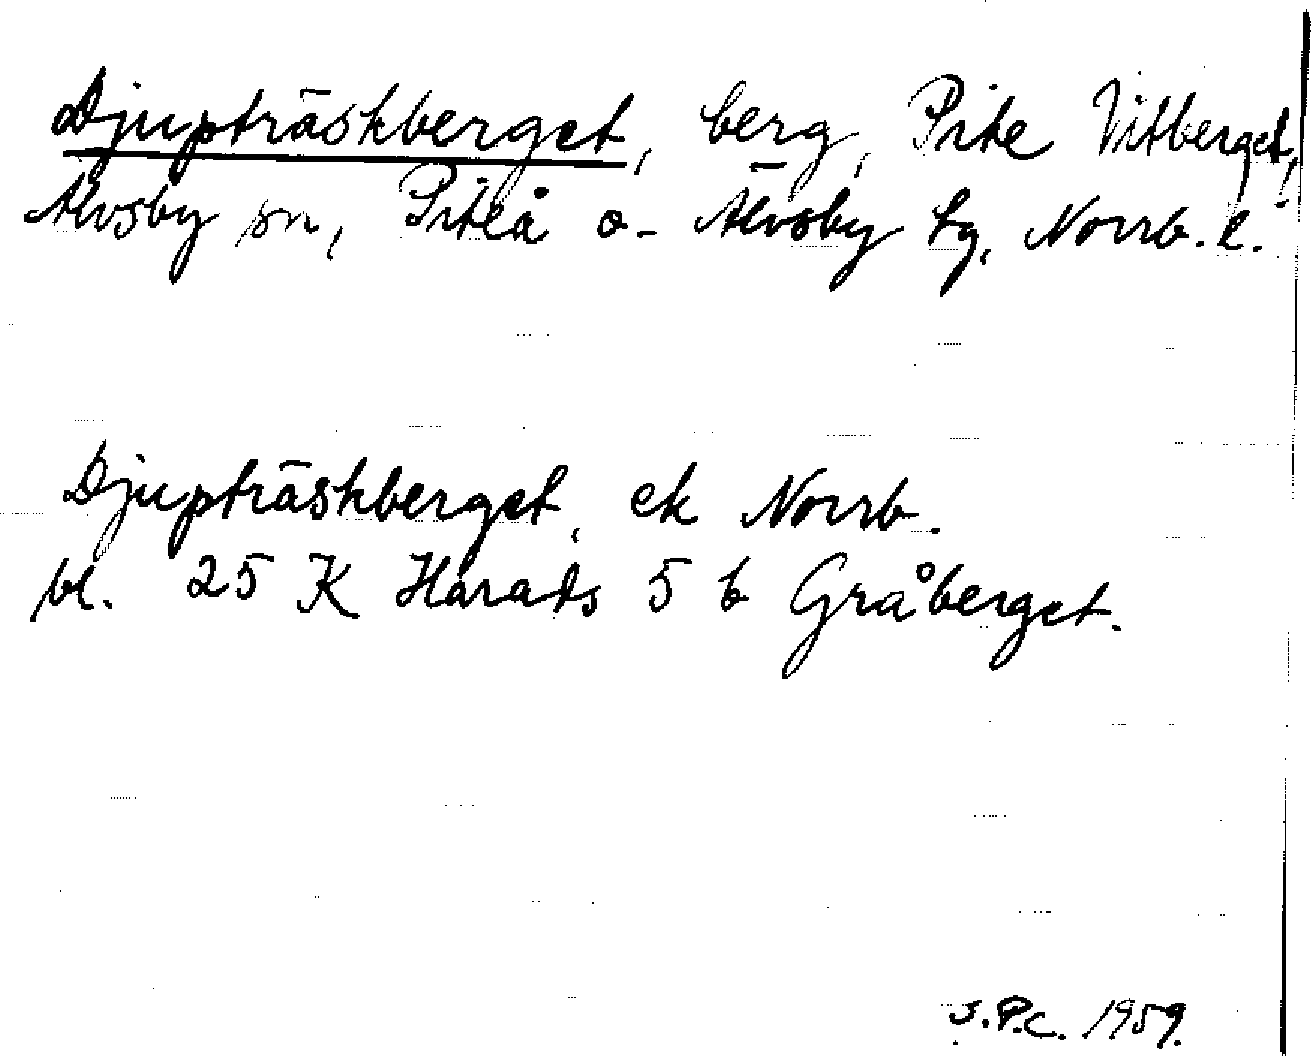 Djupträskberget, berg, Pite Vitberget,
Älvsby sn, Piteå o. Älvsby tg, Norrb. l.
Djupträskberget, ek Norrb.
bl. 25 K Harads 5 b Gråberget.
S.P.C. 1959.